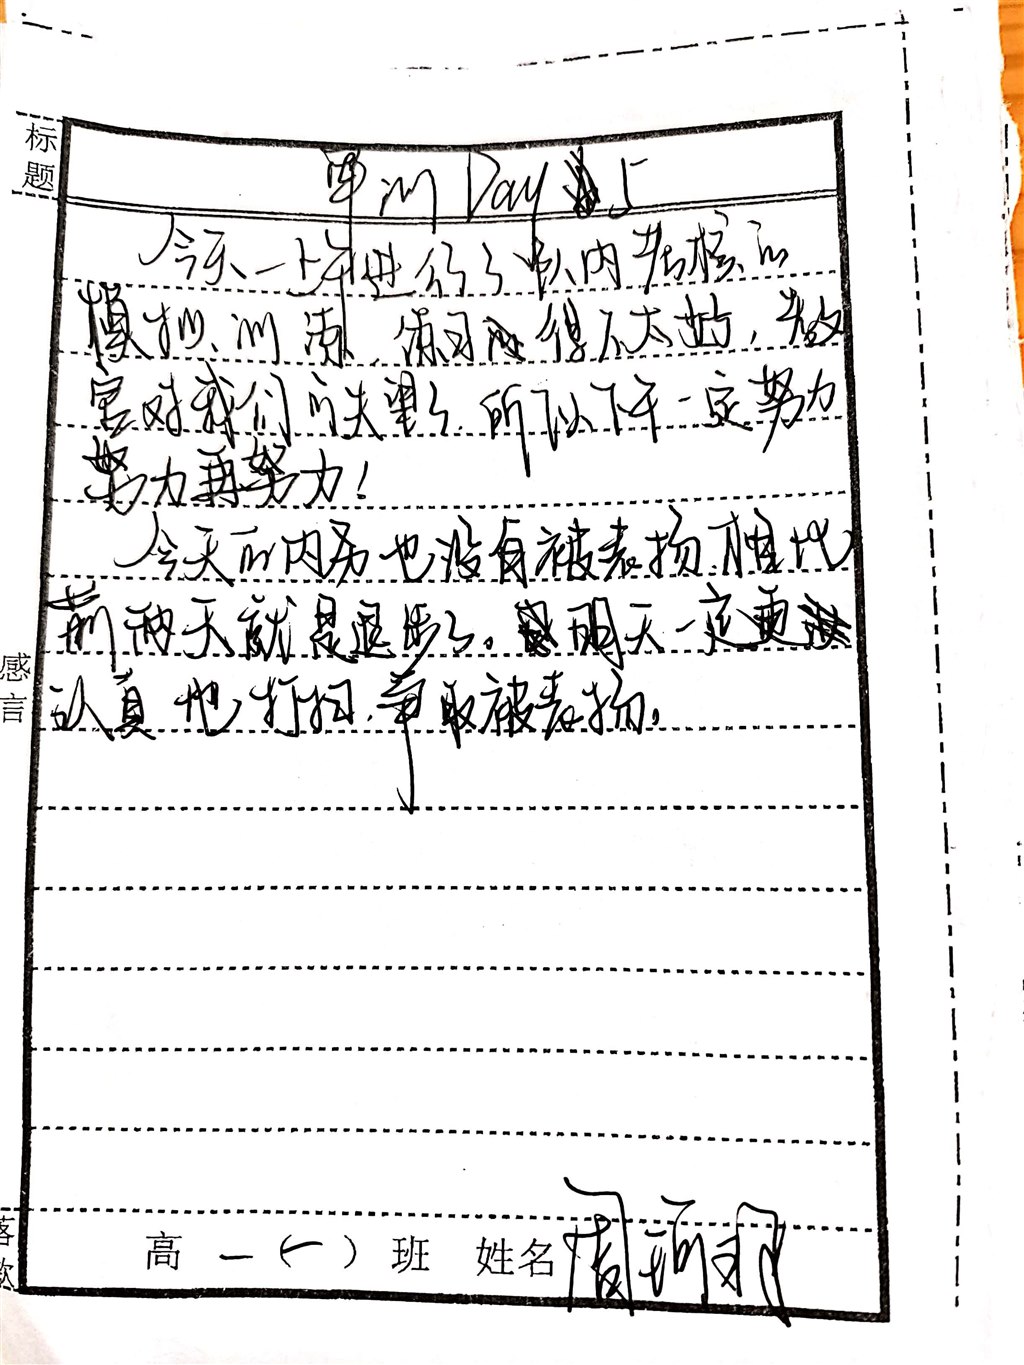 标题
军训 Day 5
今天一上午进行了队内考核的
模拟训练，练习的得不太好，教
官对我们的失望了，所以下午一定努力
努力再努力！
今天的内务也没有被表扬，相比
前两天就是退步了。明天一定更
认真地打扫，争取被表扬。
感言
落款
高一（一）班 姓名 周